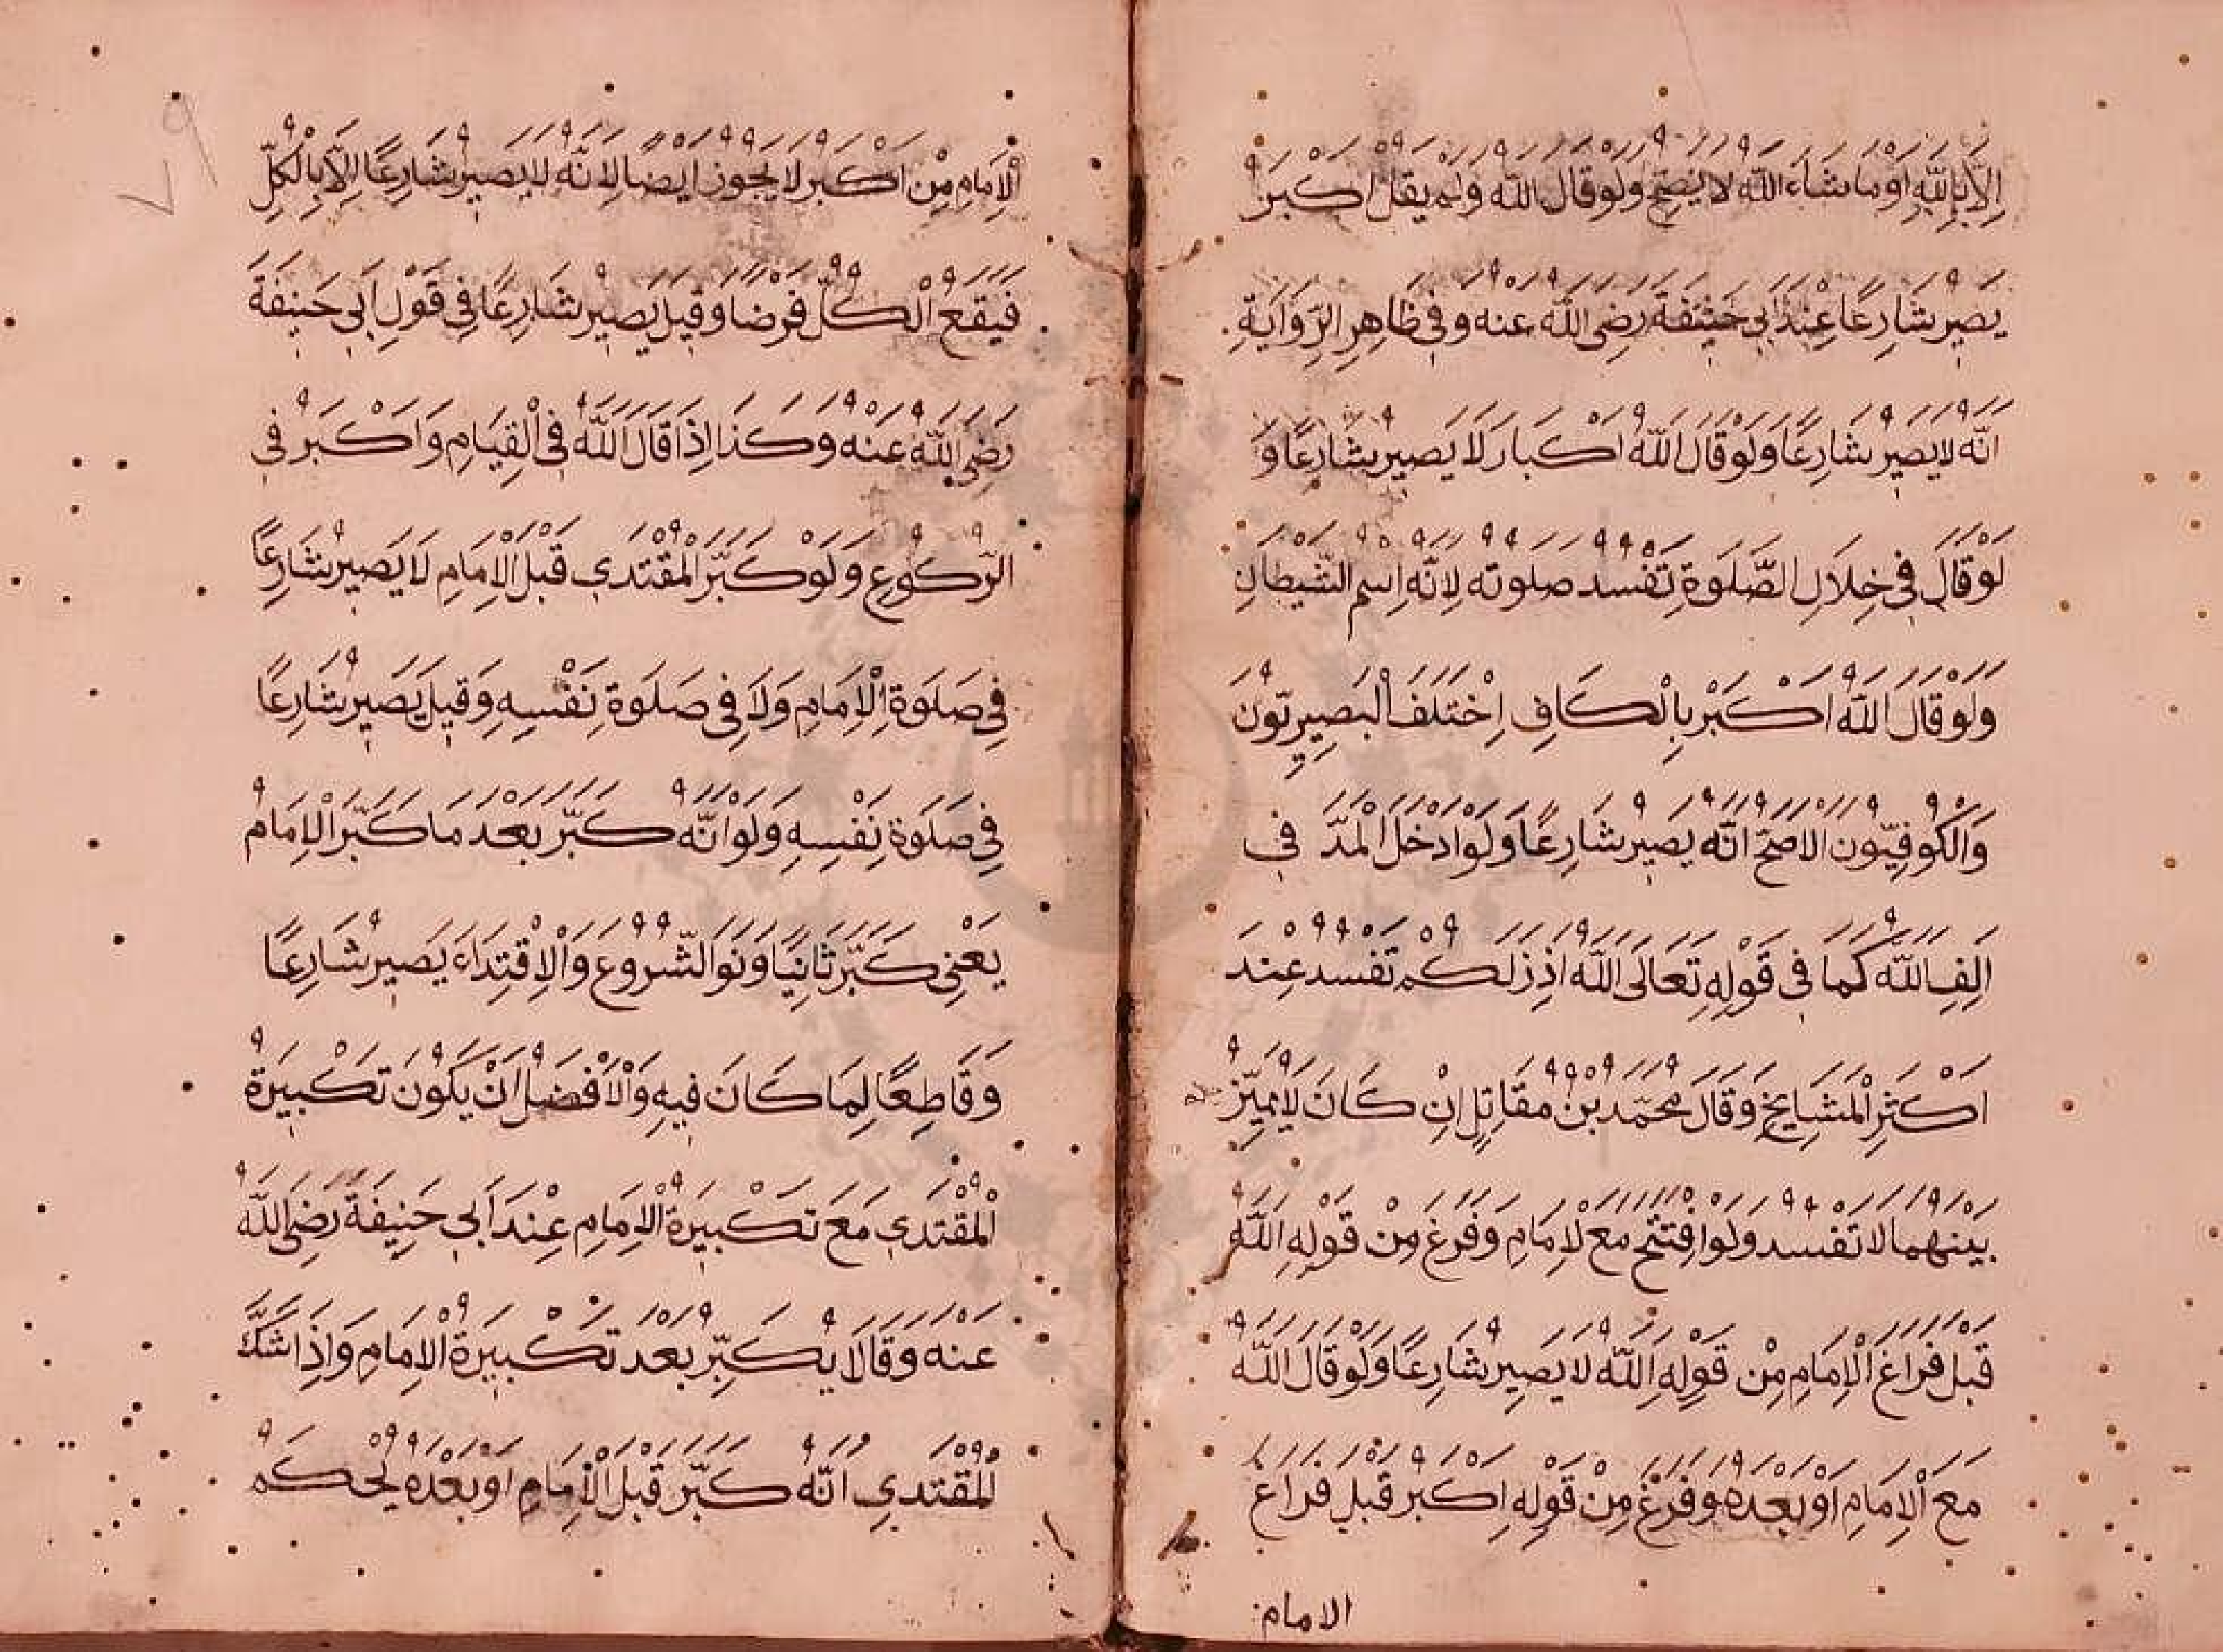 اِلَّا بِاللّٰهِ اوما شاء اللّٰه لا يصحّ ولو قال اللّٰه ولم يقل اكبر
يصير شارعًا عند ابى حنيفة رضى اللّٰه عنه وفى ظاهر الرّواية
انّه لا يصير شارعًا ولو قال اللّٰه اكبار لا يصير شارعًا و
لو قال فى خلال الصّلوة تفسد صلوته لانّه اسم الشّيطان
ولو قال اللّٰه اكبر بالكاف اختلف البصيريّون
والكوفيّون الاصحّ انّه يصير شارعًا ولو ادخل المدّ فى
الف اللّٰه كما فى قوله تعالى اللّٰه اذن لكم تفسد عند
اكثر المشايخ وقال محمّد بن مقاتل ان كان لا يميّز
بينهما لا تفسد ولو افتتح مع لامام وفرغ من قوله اللّٰه
قبل فراغ الامام من قوله اللّٰه لا يصير شارعًا ولو قال اللّٰه
مع الامام او بعده وفرغ من قوله اكبر قبل فراغ
الامام
٧٩
الامام من اكبر لا يجوز ايضًا لانّه لا يصير شارعًا الّا بالكلّ
فيقع الكلّ فرضا وقيل يصير شارعًا فى قول ابى حنيفة
رضى اللّٰه عنه وكذا اذا قال اللّٰه فى القيام واكبر فى
الرّكوع ولو كبّر المقتدى قبل الامام لا يصير شارعًا
فى صلوة الامام ولا فى صلوة نفسه وقيل يصير شارعًا
فى صلوة نفسه ولو انّه كبّر بعد ما كبّر الامام
يعنى كبّر ثانيًا ونوا الشّروع والاقتداء يصير شارعًا
وقاطعًا لما كان فيه والافضل ان يكون تكبيرة
المقتدى مع تكبيرة الامام عند ابى حنيفة رضى اللّٰه
عنه وقالا يكبّر بعد تكبيرة الامام واذا شكّ
المقتدى انّه كبّر قبل الامام او بعده يحكم